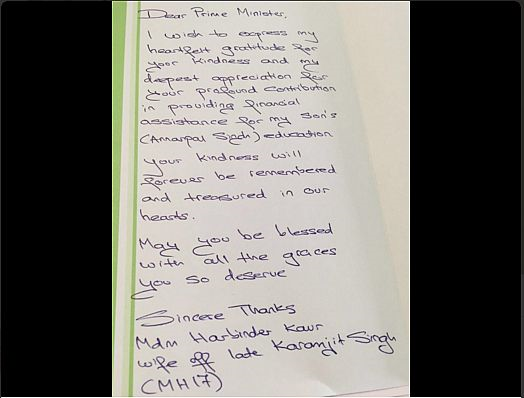 Dear Prime Minister,
I wish to express my
heartfelt gratitude for
your kindness and my
deepest appreciation for
your profound contribution
in providing financial
assistance for my son's
(Amarpal Singh) education
your kindness will
forever be remembered
and treasured in our
hearts.
May you be blessed
with all the graces
you so deserve
Sincere Thanks
Mdm Harbinder Kaur
wife off late Karamjit Singh
(MH17)